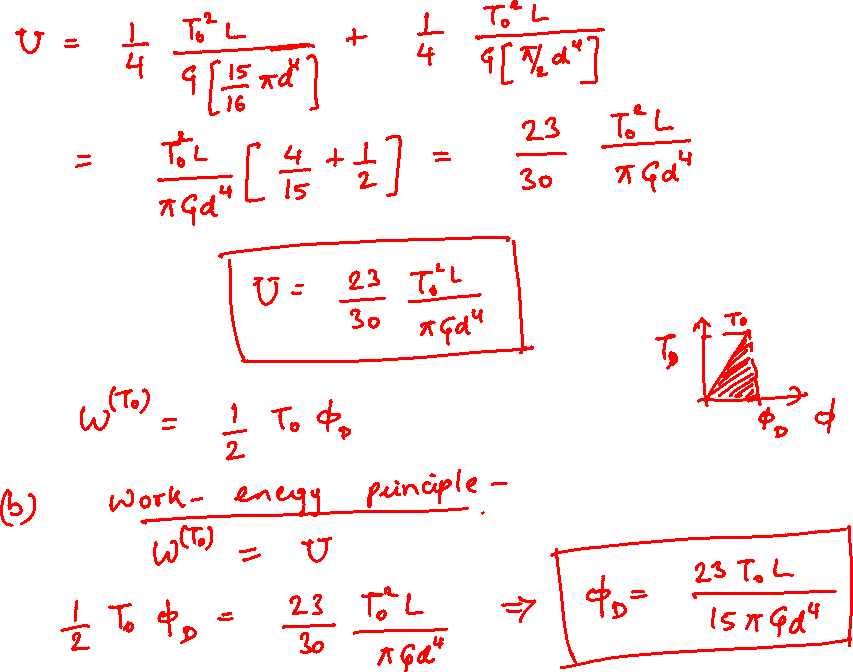 U = 1/4 T₀²L / G[15/16 πd⁴] + 1/4 T₀²L / G[π/2 d⁴]
= T₀²L / πGd⁴ [4/15 + 1/2] = 23/30 T₀²L / πGd⁴
U = 23/30 T₀²L / πGd⁴
T₀
T_D
ϕ_D ϕ
W^(T₀) = 1/2 T₀ ϕ_D
(b) Work-energy principle-
W^(T₀) = U
1/2 T₀ ϕ_D = 23/30 T₀²L / πGd⁴ ⇒ ϕ_D = 23 T₀L / 15πGd⁴